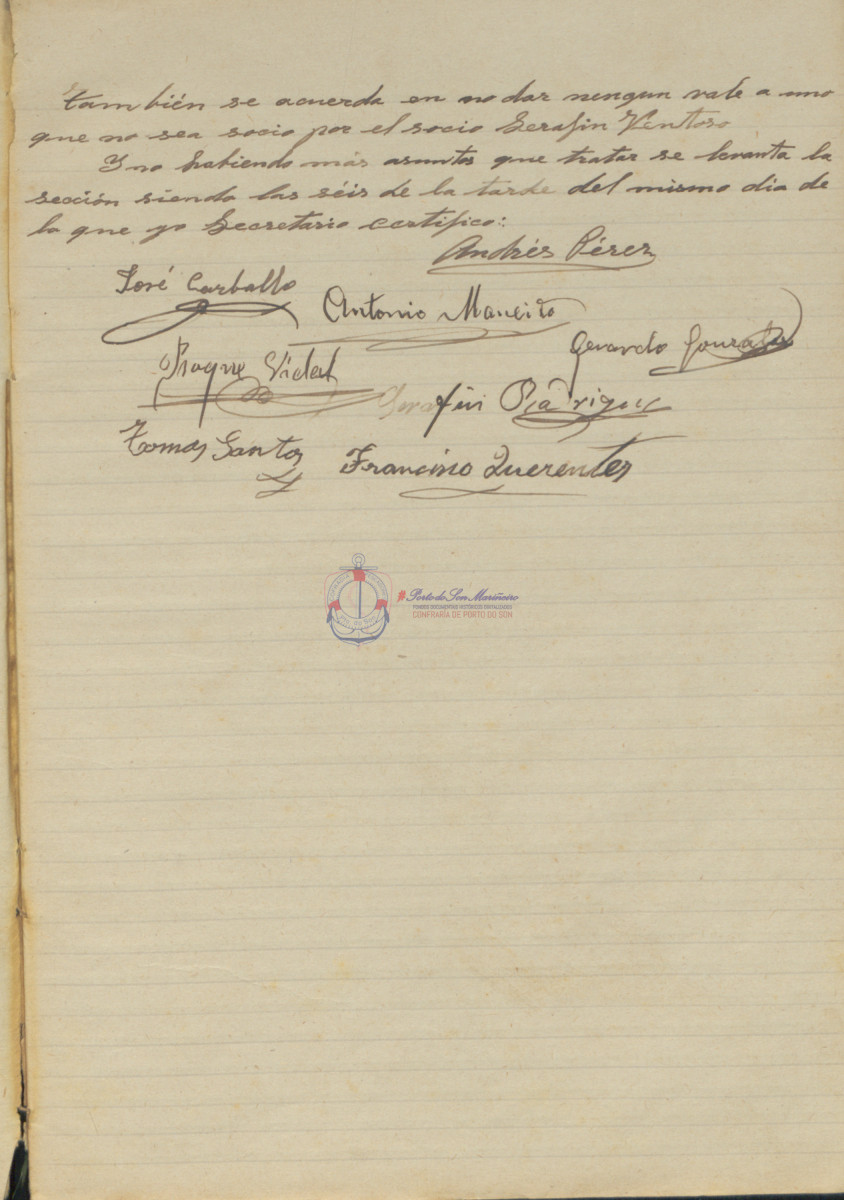 también se acuerda en no dar nengun vale a uno
que no sea socio por el socio Serafin Ventoso
Y no habiendo más asuntos que tratar se levanta la
sección siendo las séis de la tarde del mismo dia de
lo que yo Secretario certifico:
Andrés Pérez
José Carballo
Antonio Maneiro
Gerardo
Roque Vidal
Serafin Rodriguez
Tomas Santos
Francisco Querentes
#Porto do Son Mariñeiro
FONDOS DOCUMENTAIS HISTÓRICOS DIXITALIZADOS
CONFRARÍA DE PORTO DO SON